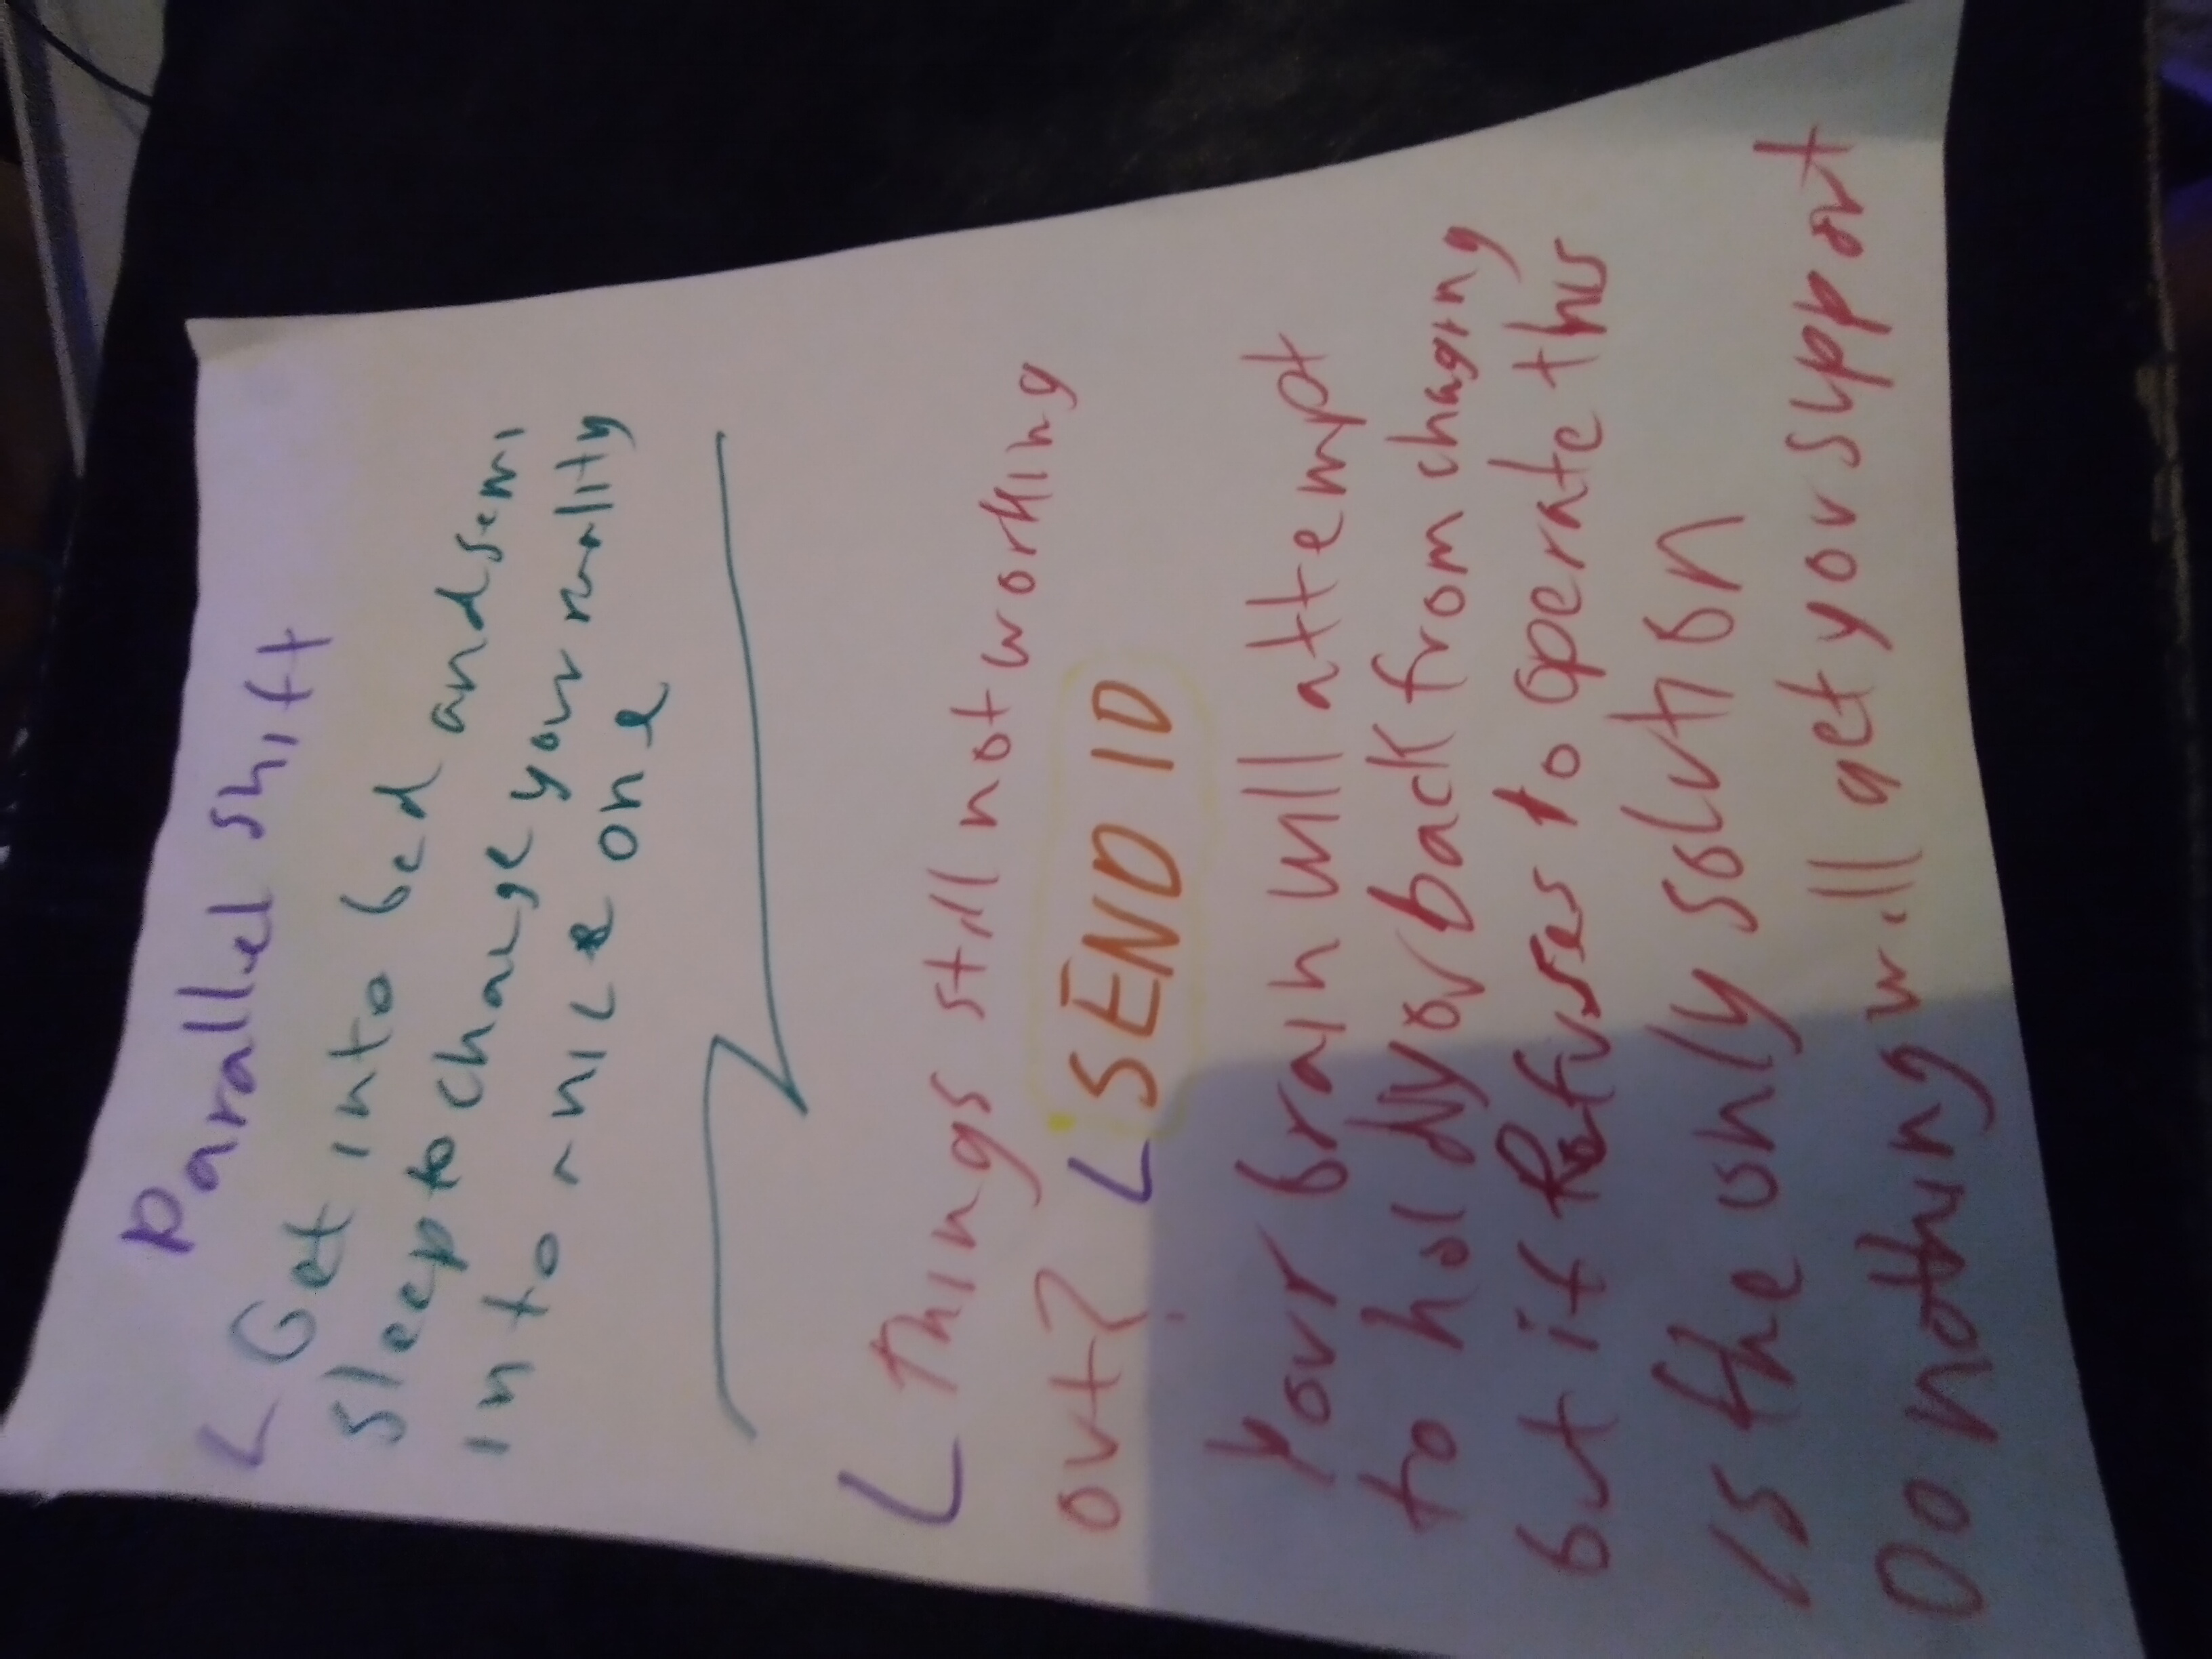 Parallel shift
Get into bed and semi
sleep to change your reality
into a nice one
Things still not working
out?
SEND ID
Your brain will attempt
to hold your back from changing
but if Refuses to operate this
is the only solution
Do nothing will get you support